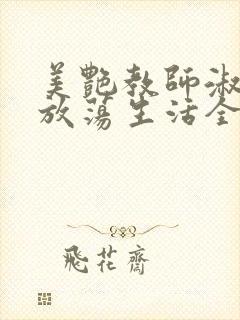 美艷教師淑
放蕩生活全
飛花齋